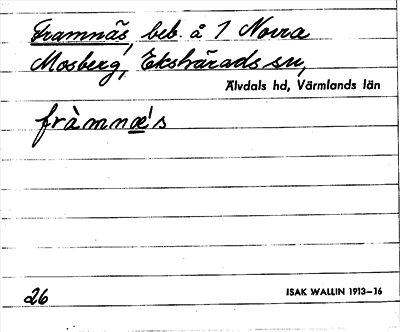 Framnäs, beb. å 1 Norra
Mosberg, Ekshärads sn,
Älvdals hd, Värmlands län
fràmnǽs
26
ISAK WALLIN 1913–16